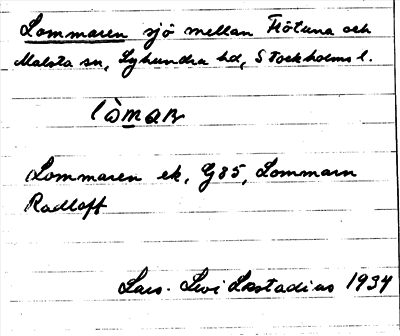 Lommaren sjö mellan Frötuna och
Malsta sn, Lyhundra hd, Stockholms l.
lòmar
Lommaren ek, G85, Lommarn
Radloff
Lars-Levi Læstadius 1934